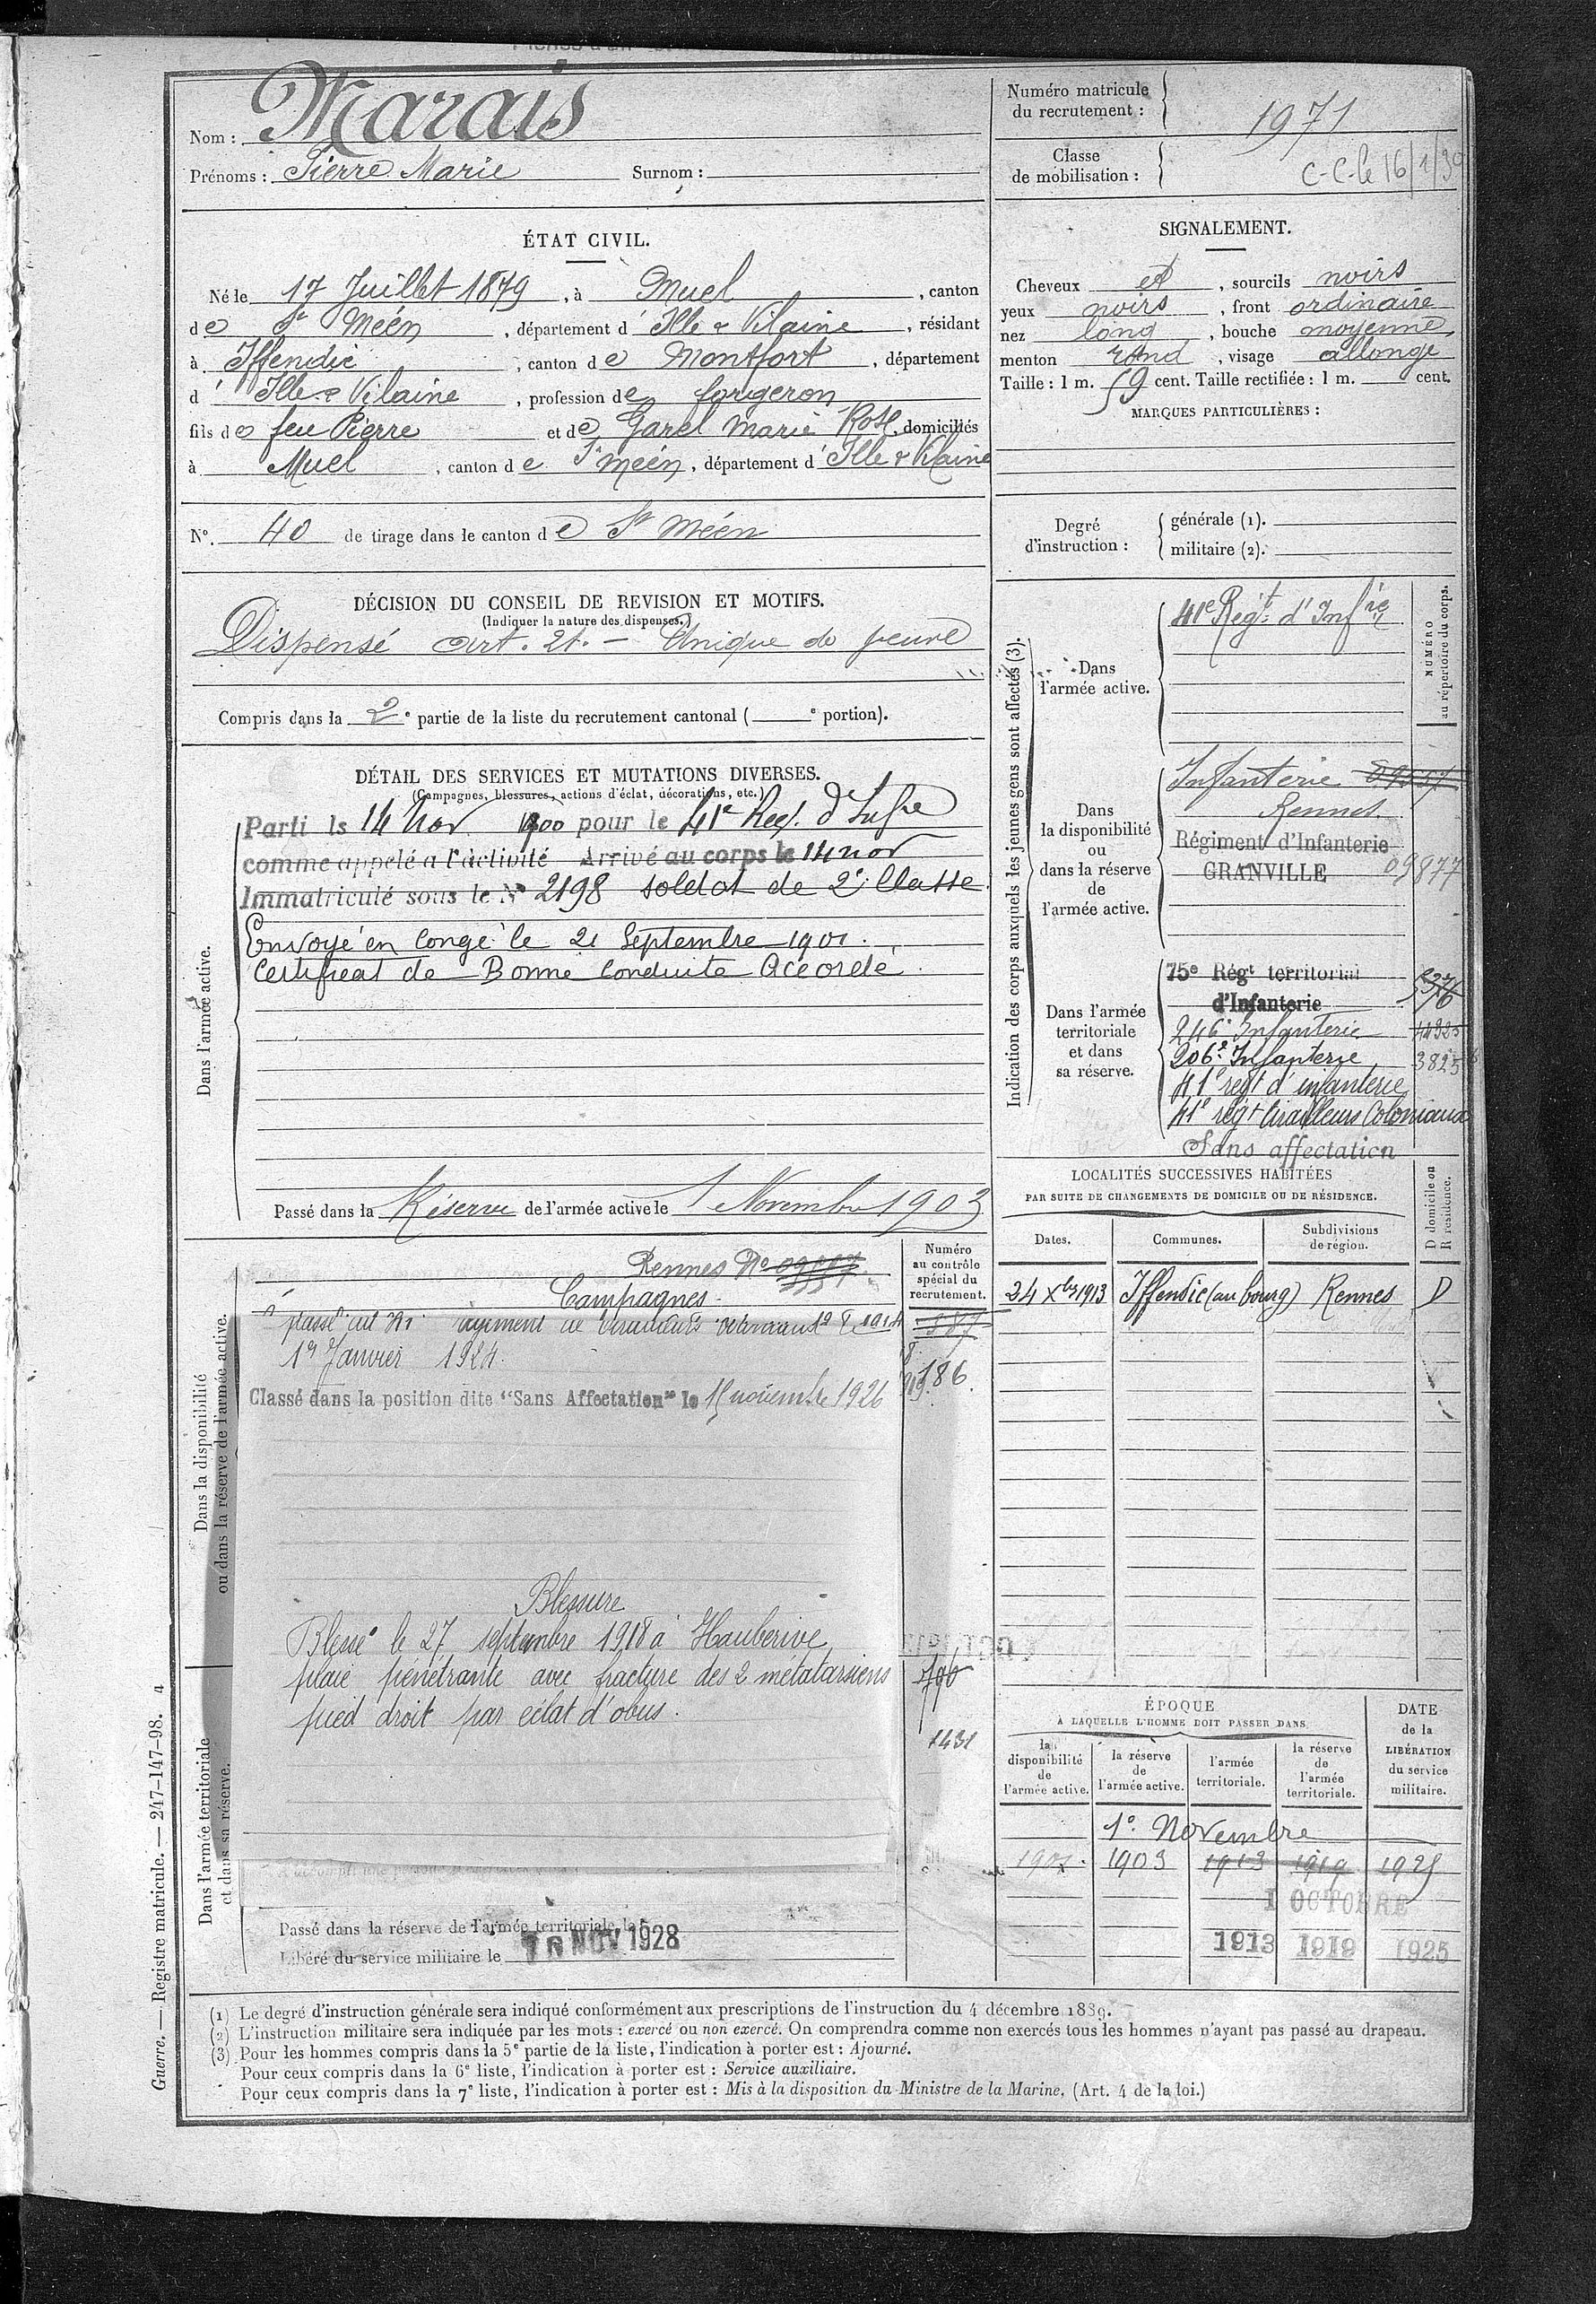 Nom : Marais
Prénoms : Pierre Marie Surnom :
Numéro matricule du recrutement : 1971
Classe de mobilisation :
C-C-le 16/1/39
ÉTAT CIVIL.
Né le 17 Juillet 1879, à Muel, canton
de St Méen, département d'Ille & Vilaine, résidant
à Iffendic, canton de Montfort, département
d'Ille & Vilaine, profession de forgeron
fils de feu Pierre et de Garel Marie Rose, domiciliés
à Muel, canton de St Méen, département d'Ille & Vilaine
N°. 40 de tirage dans le canton de St Méen
DÉCISION DU CONSEIL DE REVISION ET MOTIFS.
(Indiquer la nature des dispenses.)
Dispensé art. 21. – Unique de veuve
Compris dans la 2e partie de la liste du recrutement cantonal ( e portion).
DÉTAIL DES SERVICES ET MUTATIONS DIVERSES.
(Campagnes, blessures, actions d'éclat, décorations, etc.)
Dans l'armée active.
Parti le 14 Nov 1900 pour le 41e Reg. d'Infre
comme appelé à l'activité Arrivé au corps le 14 nov
Immatriculé sous le N° 2198 soldat de 2e Classe.
Envoyé en congé le 21 Septembre 1901.
Certificat de Bonne Conduite Accordé.
Passé dans la Réserve de l'armée active le 1 Novembre 1903
Numéro au contrôle spécial du recrutement.
Dans la disponibilité ou dans la réserve de l'armée active.
Rennes No
Campagnes.
1er Janvier 1924.
186
Classé dans la position dite "Sans Affectation" le 15 novembre 1926
Blessure
Blessé le 27 septembre 1918 à Hauberive
plaie pénétrante avec fracture des 2 métatarsiens
pied droit par éclat d'obus.
796
1431
Dans l'armée territoriale et dans sa réserve.
Passé dans la réserve de l'armée territoriale le
Libéré du service militaire le NOV 1928
SIGNALEMENT.
Cheveux et, sourcils noirs
yeux noirs, front ordinaire
nez long, bouche moyenne,
menton rond, visage allongé
Taille : 1 m. 59 cent. Taille rectifiée : 1 m. cent.
MARQUES PARTICULIÈRES :
Degré d'instruction : générale (1).
militaire (2).
Indication des corps auxquels les jeunes gens sont affectés (3).
NUMÉRO au répertoire du corps.
Dans l'armée active.
41e Régt d'Infrie
Dans la disponibilité ou dans la réserve de l'armée active.
Infanterie
Rennes
Régiment d'Infanterie
GRANVILLE 09877
Dans l'armée territoriale et dans sa réserve.
75e Régt territorial
d'Infanterie
246e Infanterie
206e Infanterie
41e regt d'infanterie
41e régt tirailleurs Coloniaux
Sans affectation
LOCALITÉS SUCCESSIVES HABITÉES
PAR SUITE DE CHANGEMENTS DE DOMICILE OU DE RÉSIDENCE.
Dates. Communes. Subdivisions de région. D domicile ou R résidence.
24 Xbre 1913 Iffendic (au bourg) Rennes D
ÉPOQUE
À LAQUELLE L'HOMME DOIT PASSER DANS
DATE de la LIBÉRATION du service militaire.
la disponibilité de l'armée active. la réserve de l'armée active. l'armée territoriale. la réserve de l'armée territoriale.
1er Novembre
1901 1903 1913 1919 1925
1 OCTOBRE
1913 1919 1925
(1) Le degré d'instruction générale sera indiqué conformément aux prescriptions de l'instruction du 4 décembre 1889.
(2) L'instruction militaire sera indiquée par les mots : exercé ou non exercé. On comprendra comme non exercés tous les hommes n'ayant pas passé au drapeau.
(3) Pour les hommes compris dans la 5e partie de la liste, l'indication à porter est : Ajourné.
Pour ceux compris dans la 6e liste, l'indication à porter est : Service auxiliaire.
Pour ceux compris dans la 7e liste, l'indication à porter est : Mis à la disposition du Ministre de la Marine. (Art. 4 de la loi.)
Guerre. — Registre matricule. — 247-147-98. 4